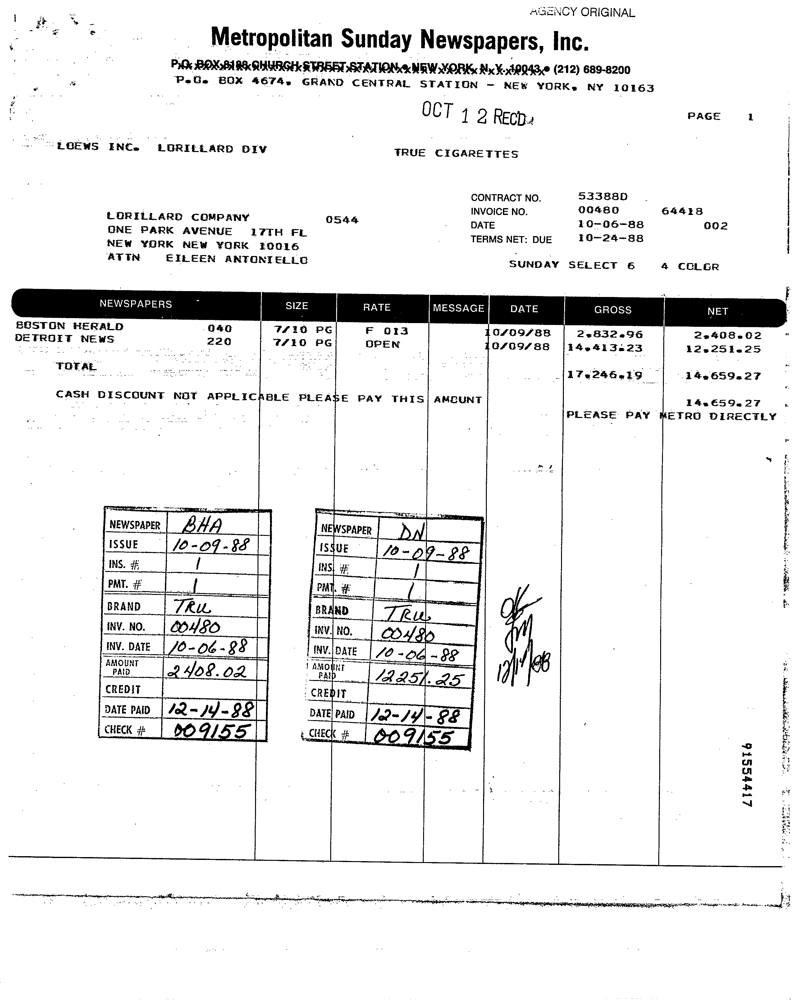 AGENCY ORIGINAL
Metropolitan Sunday Newspapers, Inc.
P.O. BOX 8198 CHURCH STREET STATION • NEW YORK, N.Y. 10043 • (212) 689-8200
P.O. BOX 4674, GRAND CENTRAL STATION - NEW YORK, NY 10163
OCT 12 REC'D
PAGE 1
LOEWS INC. LORILLARD DIV TRUE CIGARETTES
CONTRACT NO. 53388D
INVOICE NO. 00480 64418
DATE 10-06-88 002
TERMS NET: DUE 10-24-88
LORILLARD COMPANY 0544
ONE PARK AVENUE 17TH FL
NEW YORK NEW YORK 10016
ATTN EILEEN ANTONIELLO
SUNDAY SELECT 6 4 COLOR
NEWSPAPERS SIZE RATE MESSAGE DATE GROSS NET
BOSTON HERALD 040 7/10 PG F 013 10/09/88 2,832.96 2,408.02
DETROIT NEWS 220 7/10 PG OPEN 10/09/88 14,413.23 12,251.25
TOTAL 17,246.19 14,659.27
CASH DISCOUNT NOT APPLICABLE PLEASE PAY THIS AMOUNT 14,659.27
PLEASE PAY METRO DIRECTLY
NEWSPAPER BHA
ISSUE 10-09-88
INS. # 1
PMT. # 1
BRAND TRU
INV. NO. 00480
INV. DATE 10-06-88
AMOUNT PAID 2408.02
CREDIT
DATE PAID 12-14-88
CHECK # 009155
NEWSPAPER DN
ISSUE 10-09-88
INS. # 1
PMT. # 1
BRAND TRU
INV. NO. 00480
INV. DATE 10-06-88
AMOUNT PAID 12251.25
CREDIT
DATE PAID 12-14-88
CHECK # 009155
OK
91554417